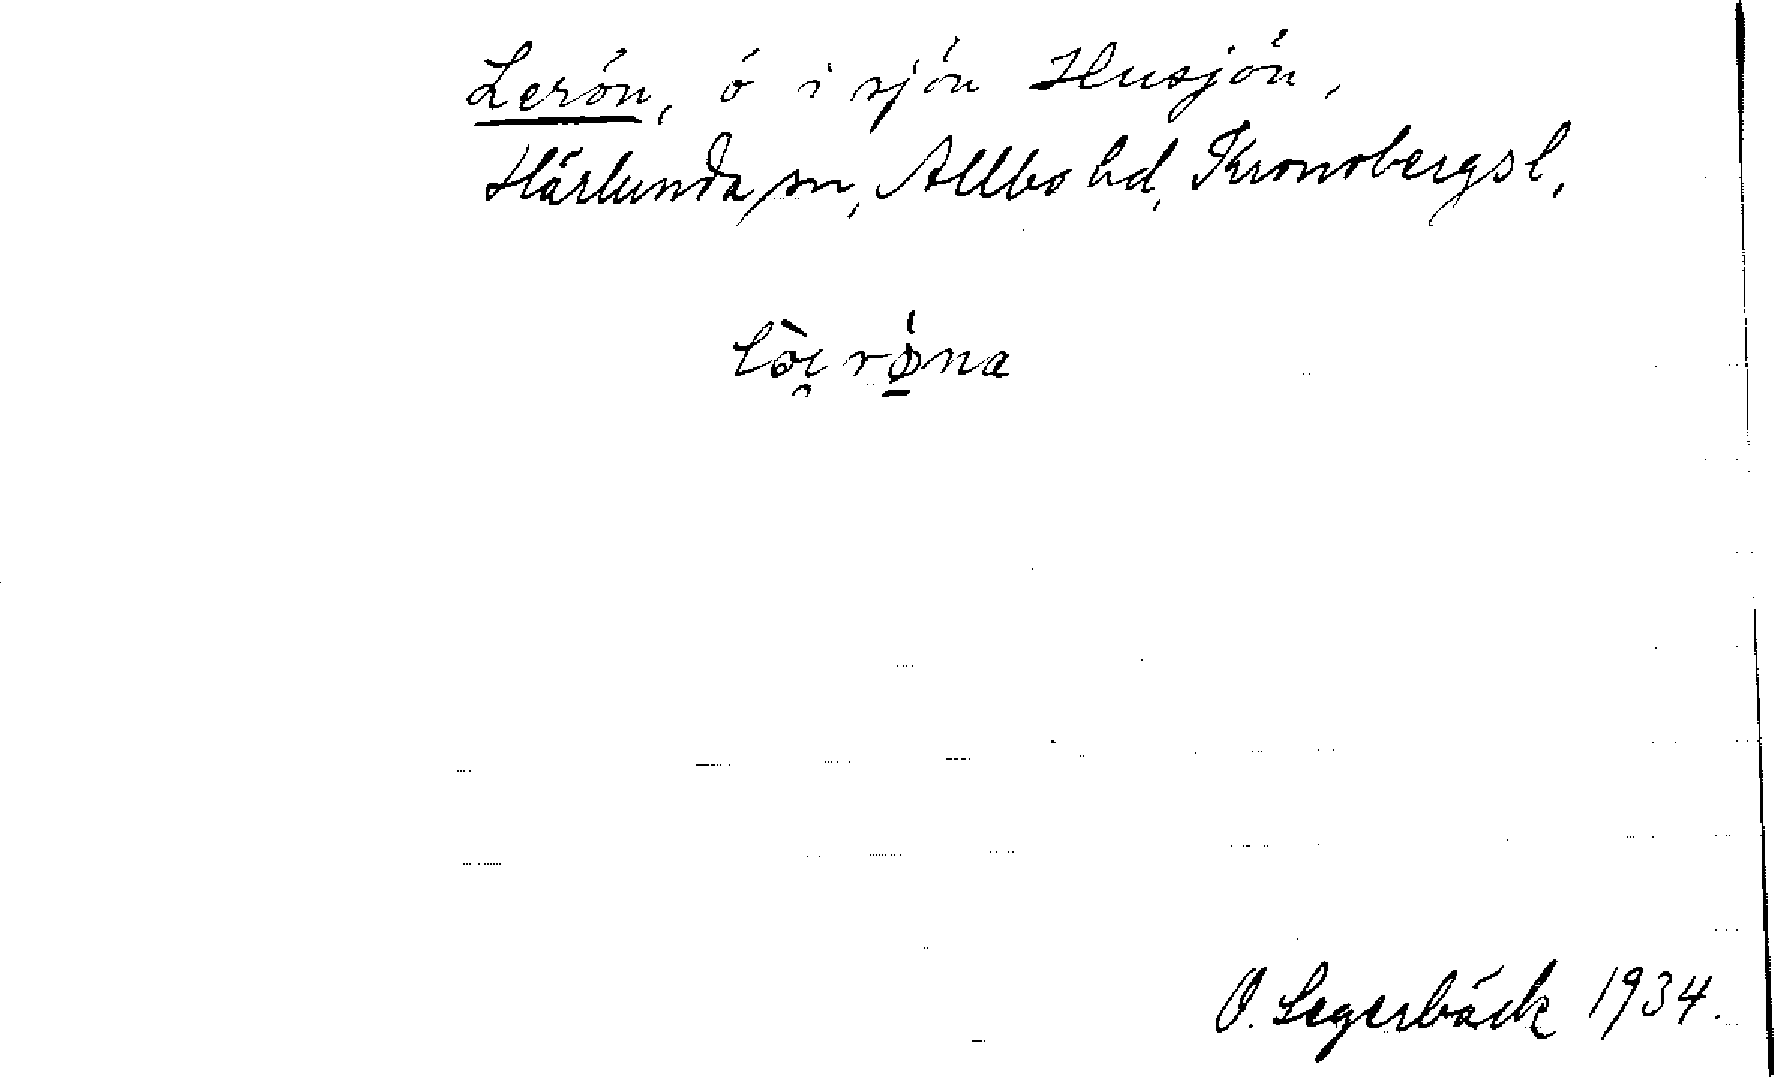 Lerön, ö i sjön Husjön,
Härlunda sn, Allbo hd, Kronobergs l,
O. Segerbäck 1934.